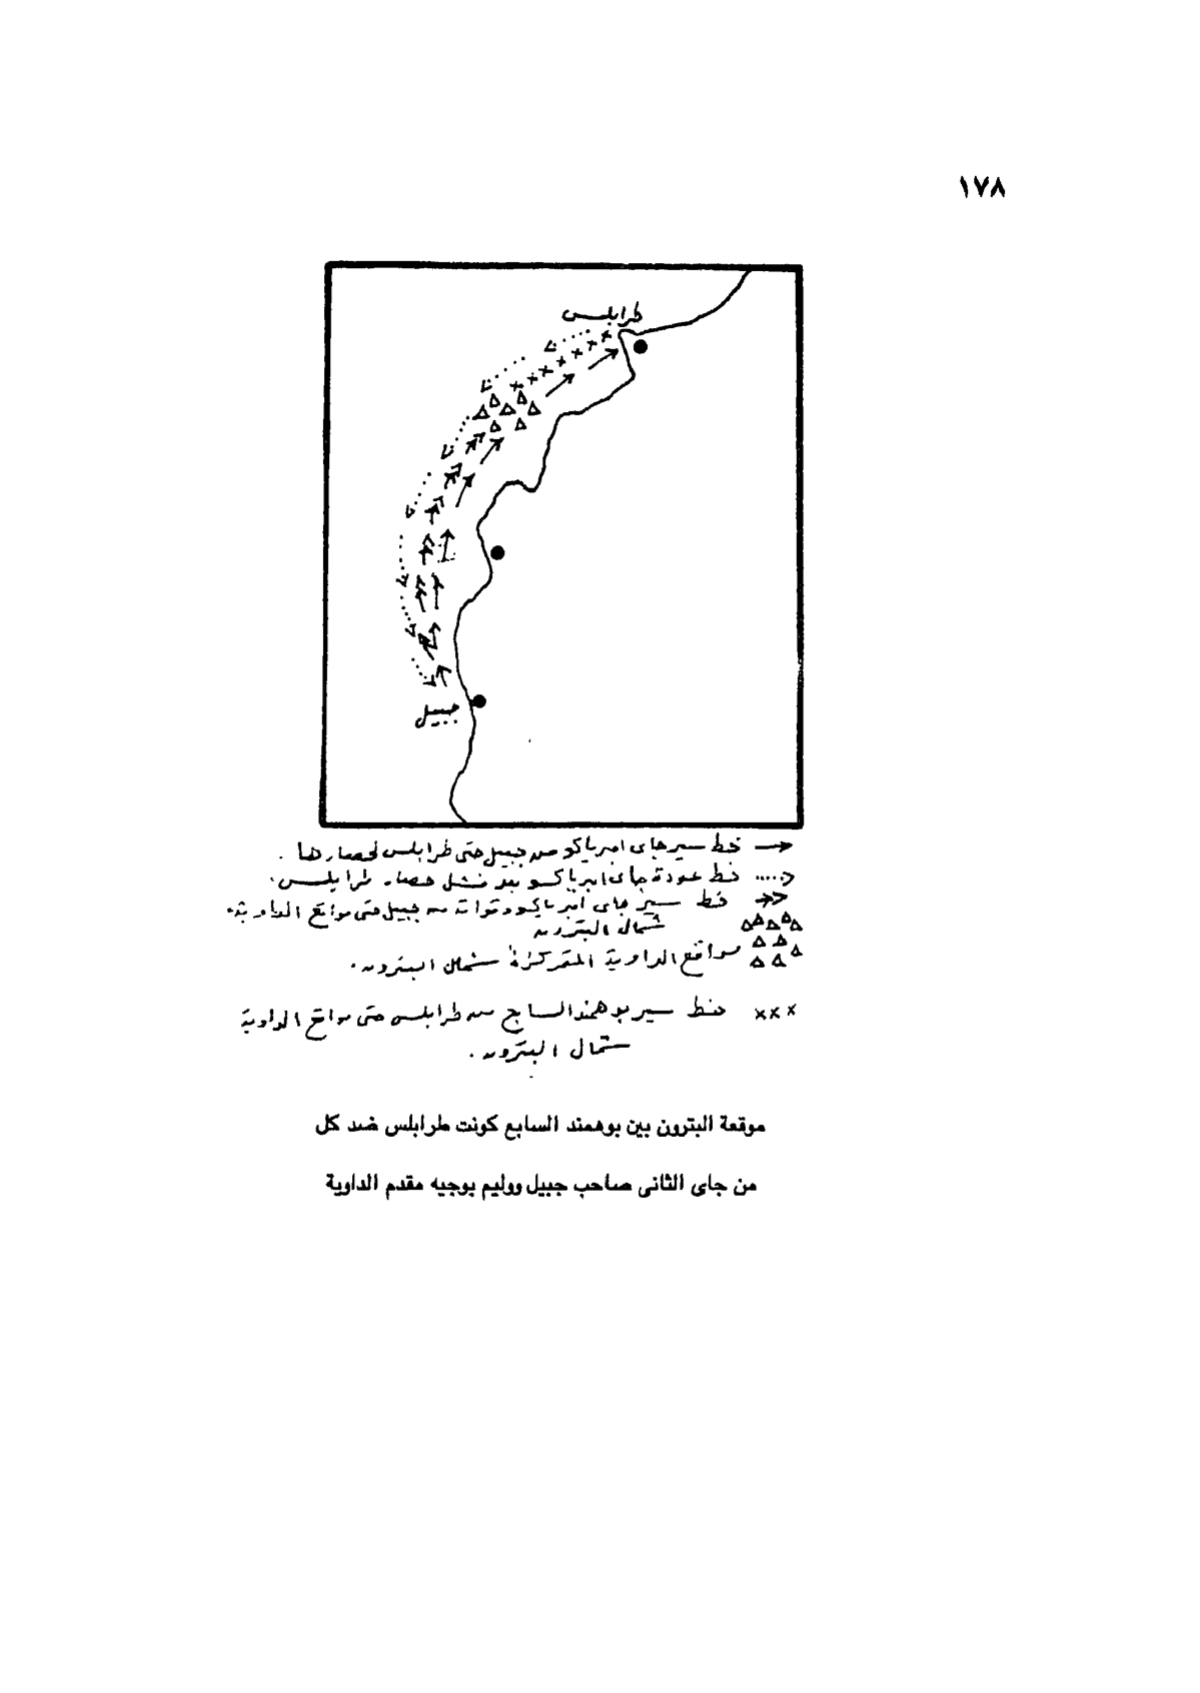 ١٧٨
طرابلس
جبيل
خط سير جاى امبرياكو من جبيل حتى طرابلس لحصارها .
خط عودة جاى امبرياكو بعد فشل حصار طرابلس .
خط سير جاى امبرياكو وقواته من جبيل حتى مواقع الداوية
شمال البترون
مواقع الداوية المتمركزة شمال البترون .
خط سير بوهمند السابع من طرابلس حتى مواقع الداوية
شمال البترون .
موقعة البترون بين بوهمند السابع كونت طرابلس ضد كل
من جاى الثانى صاحب جبيل ووليم بوجيه مقدم الداوية